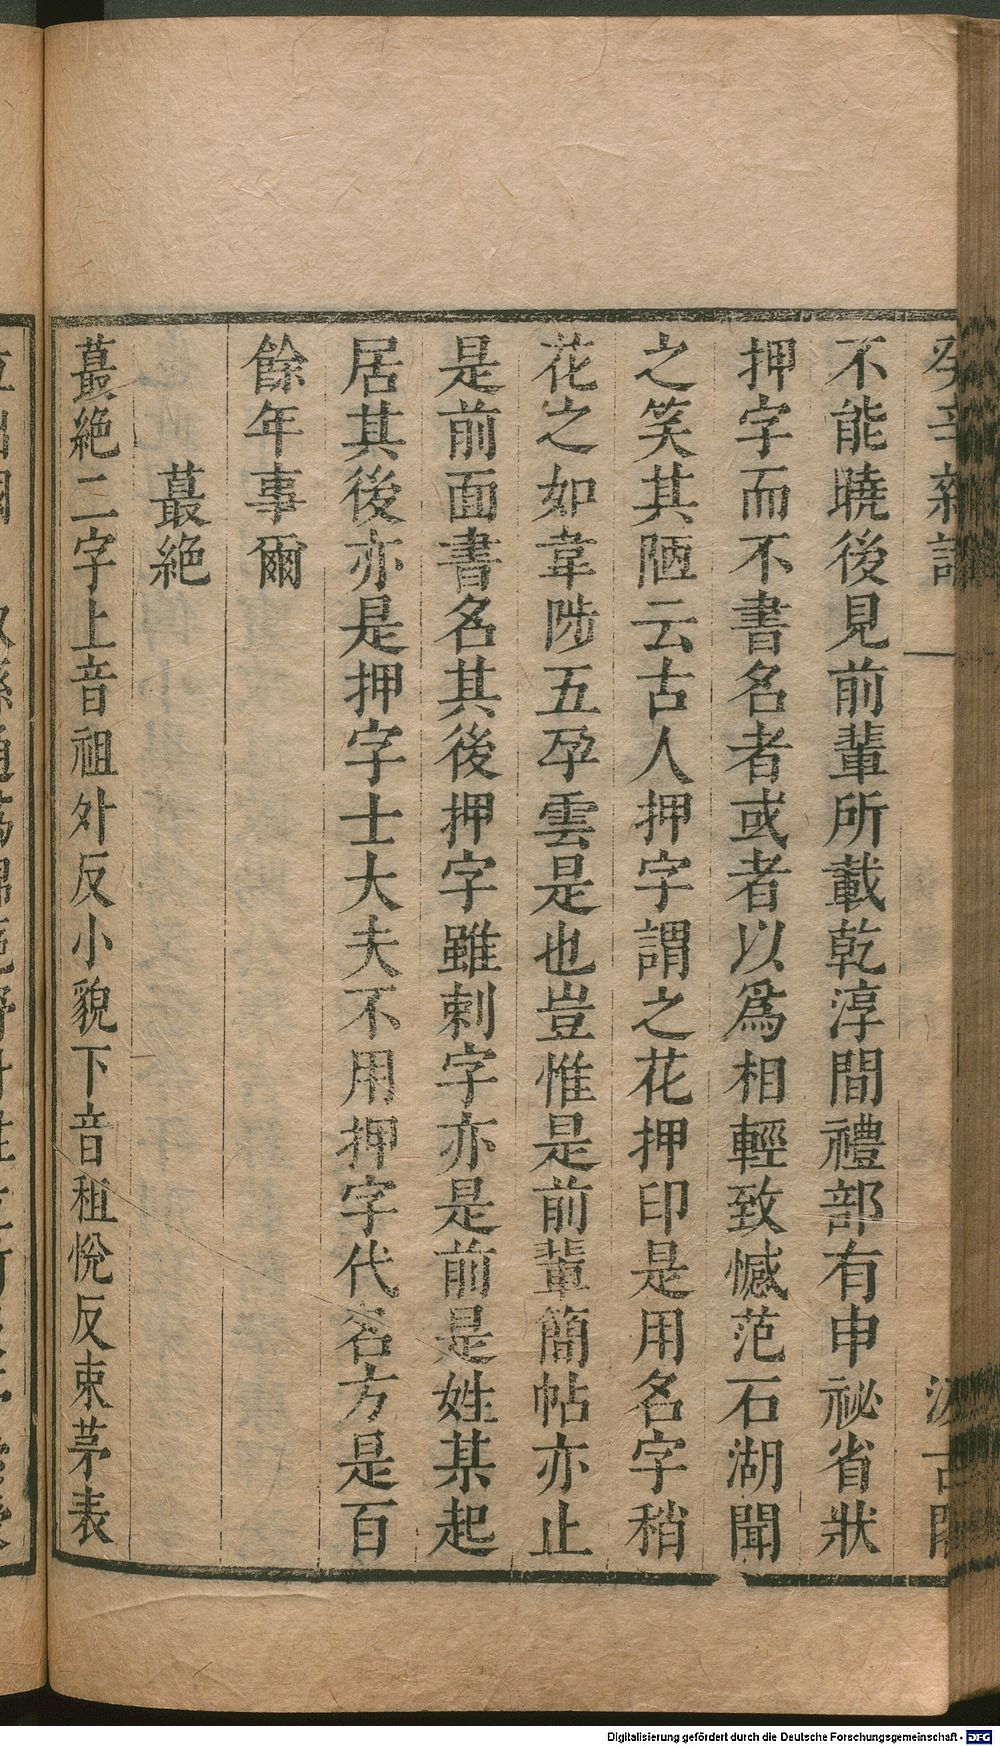 癸辛雜識
不能曉後見前輩所載乾淳間禮部有申祕省狀
押字而不書名者或者以爲相輕致憾范石湖聞
之笑其陋云古人押字謂之花押印是用名字稍
花之如韋陟五朶雲是也豈惟是前輩簡帖亦止
是前面書名其後押字雖刺字亦是前是姓某起
居其後亦是押字士大夫不用押字代名方是百
餘年事爾
蕞絶
蕞絶二字上音祖外反小貌下音租悅反束茅表
Digitalisierung gefördert durch die Deutsche Forschungsgemeinschaft - DFG